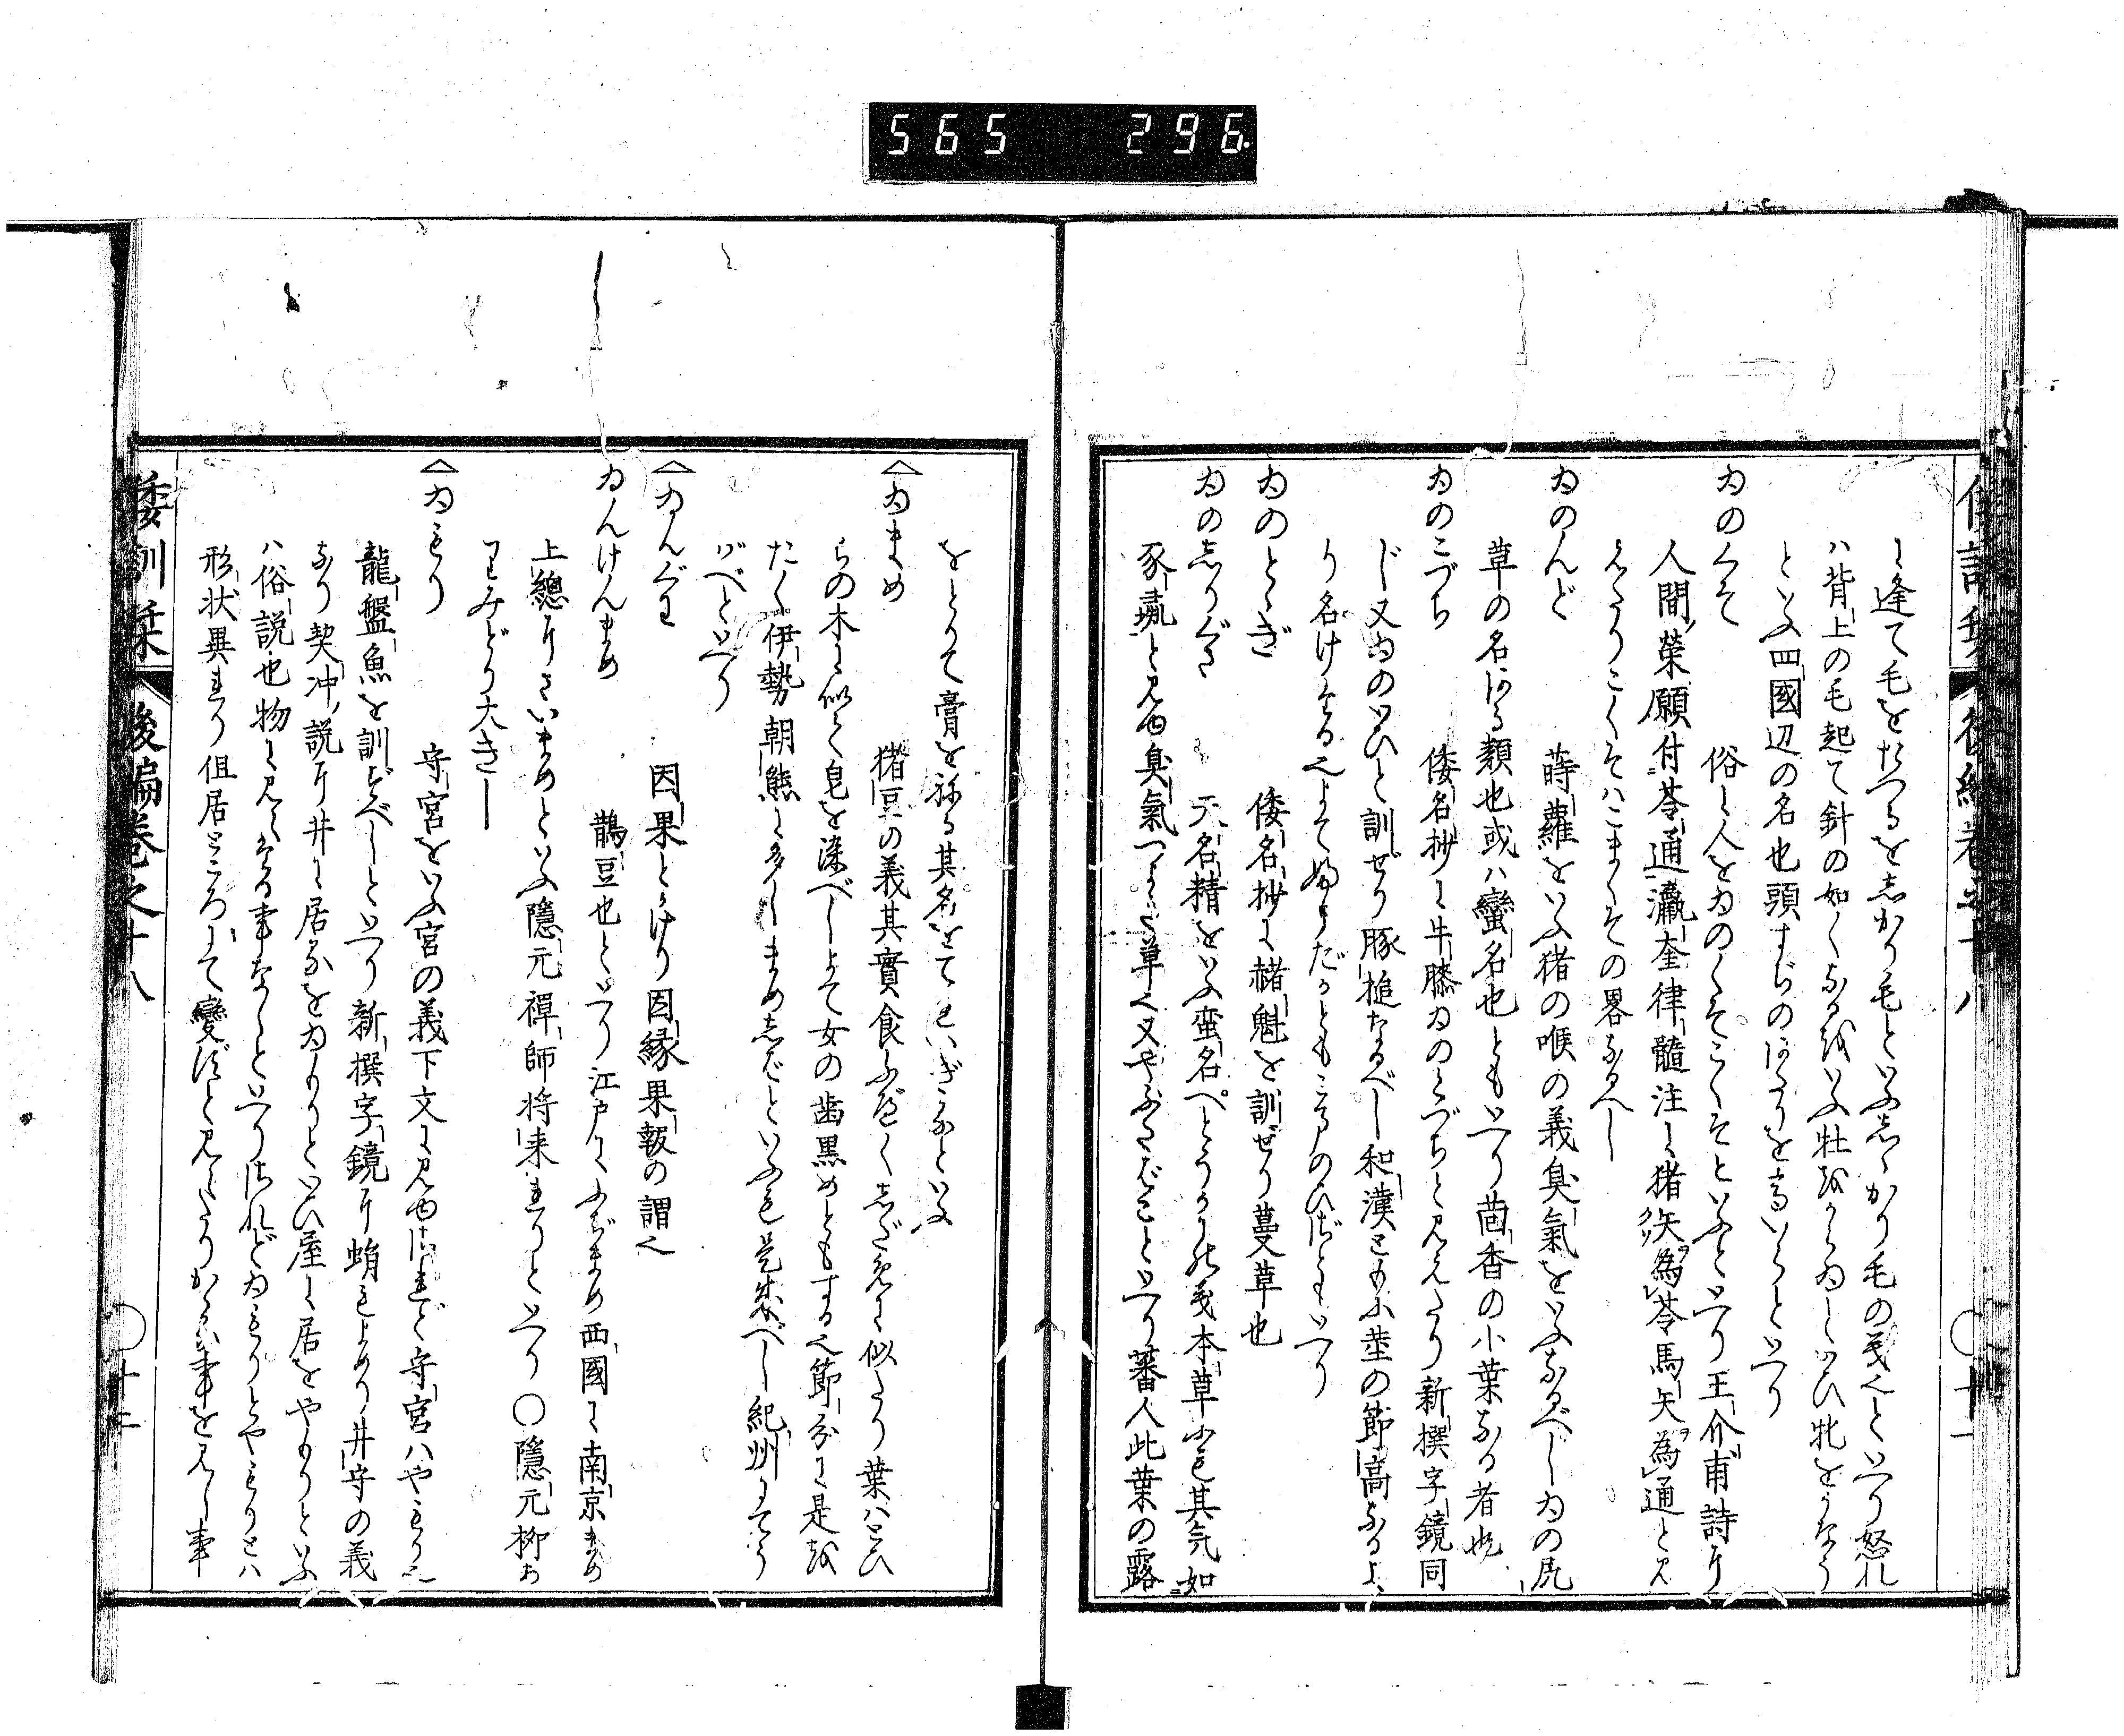 565 296
に逢て毛をたつるをしかり毛といふしゝかり毛の義也といへり怒れ
ハ背上の毛起て針の如くなるをいふ牡をかるゐといひ牝をうなう
といふ四國辺の名也頭すぢのほとりを高いらといへり
ゐのくそ 俗に人をゐのくそこくそといふといへり王介甫詩に
人間榮願付苓通瀛奎律髓注に猪矢為苓馬矢為通と見
えたりこくそハこまくその畧なるへし
ゐのんど 蒔蘿をいふ猪の喉の義臭氣をいふなるべしゐの尻
草の名ある類也或ハ蠻名也ともいへり茴香の小葉なる者也
ゐのこづち 倭名抄に牛膝ゐのくづちと見えたり新撰字鏡同
じ又ゐのいひと訓ぜり豚槌なるべし和漢ともに莖の節高なるよ
り名けたる也よてふしだかともこまのひざともいへり
ゐのとゝぎ 倭名抄に赭魁を訓ぜり蔓草也
ゐのしりぐさ 天名精をいふ蛮名へとうりの義本草にも其気如
豕彘と見ゆ臭氣つよき草也又やぶたばこといへり蕃人此葉の露
をとりて膏を練る其名をてれいぎなといふ
ゐまめ 猪豆の義其實食ふべくしだみに似たり葉ハとひ
らの木に似て皂を染べしよて女の歯黒めともする也節分に是を
たく伊勢朝熊に多しまめしばといふも是成べし紀州にてう
バべといへり
ゐんぐわ 因果とかけり因縁果報の謂也
ゐんけんまめ 鵲豆也といへり江戸にてふぢまめ西國に南京まめ
上總にさいまめといふ隱元禪師将来せりといへり〇隱元柳あ
りみどり大きし
ゐもり 守宮をいふ宮の義下文に見ゆされど守宮ハやもり也
龍盤魚を訓ずべしといへり新撰字鏡に蛕もよめり井守の義
なり契冲説に井に居るをゐもりといひ屋に居をやもりといふ
ハ俗説也物に見えたる事なしといへりされどゐもりとやもりとハ
形状異れり但居ところにて變ずと見えたりかゝる事を見し事
倭訓栞 後編巻之十八 〇十二